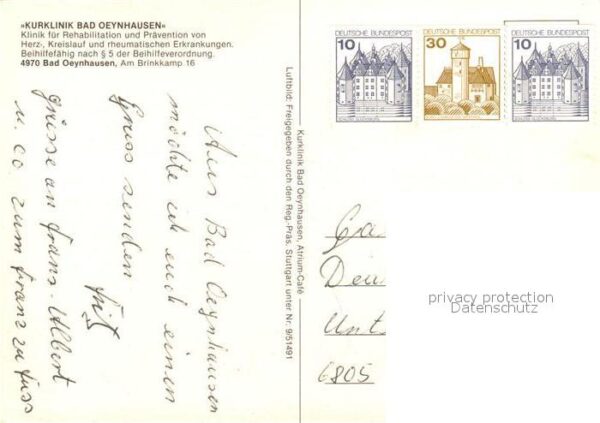 »KURKLINIK BAD OEYNHAUSEN«
Klinik für Rehabilitation und Prävention von
Herz-, Kreislauf und rheumatischen Erkrankungen.
Beihilfefähig nach § 5 der Beihilfeverordnung.
4970 Bad Oeynhausen, Am Brinkkamp 16
Aus Bad Oeynhausen
möchte ich euch einen
Gruss senden
Grüsse an Franz-Albert
u. co zum Franz zu Fuss
Kurklinik Bad Oeynhausen, Atrium-Café
Luftbild: Freigegeben durch den Reg.-Präs. Stuttgart unter Nr. 9/51491
DEUTSCHE BUNDESPOST
10
DEUTSCHE BUNDESPOST
30
DEUTSCHE BUNDESPOST
10
privacy protection
Datenschutz
6805